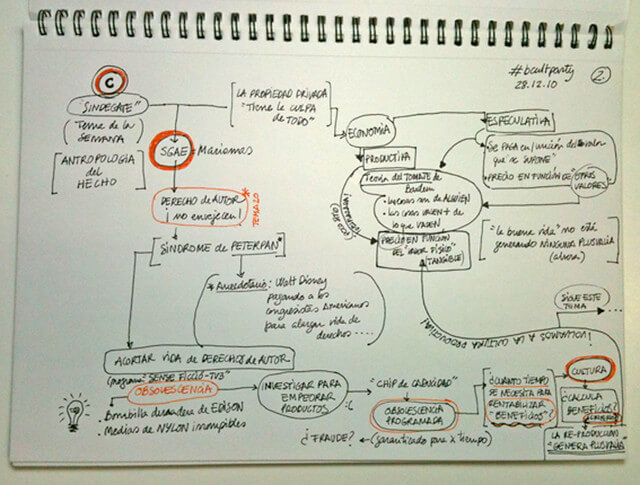 #bcultparty
28.12.10
2.
C
"SINDEGATE"
(Tema de la
SEMANA)
[ANTROPOLOGÍA
del
HECHO]
SGAE = Mariomas
LA PROPIEDAD PRIVADA
"Tiene la CULPA
de TODO"
ECONOMÍA
ESPECULATIVA
Se PAGA en función del valor
que "se SUPONE"
PRECIO EN FUNCIÓN de "OTROS
VALORES"
PRODUCTIVA
Teoría del TOMATE de
Bardem
• las cosas son de ALGUIEN
• las cosas VALEN + de
lo que VALEN
PRECIO EN FUNCIÓN
del "VALOR FÍSICO"
(TANGIBLE)
DERECHO de AUTOR
¡no envejecen!
TEMAZO
[SÍNDROME de PETERPAN*]
* Anecdotario: Walt Disney
pagando a los
congresistas Americanos
para alargar vida de
derechos ....
"la buena vida" no está
generando NINGUNA PLUSVALÍA
(ahora)
SIGUE ESTE
TEMA
¡VOLVAMOS A LA CULTURA PRODUCTIVA!
ACORTAR VIDA DE DERECHOS DE AUTOR
(programa "SENSE FICCIÓ-TV3")
OBSOLESCENCIA
• Bombilla duradera de EDISON
• Medias de NYLON irrompibles
INVESTIGAR PARA
EMPEORAR
PRODUCTOS
:(
"CHIP de CADUCIDAD"
OBSOLESCENCIA
PROGRAMADA
(garantizado para x tiempo)
¿FRAUDE?
¿CUANTO TIEMPO
SE NECESITA PARA
RENTABILIZAR
"BENEFICIOS"?
CULTURA
¿CALCULA
BENEFICIOS?
LA RE-PRODUCCIÓN
"GENERA PLUSVALÍA"